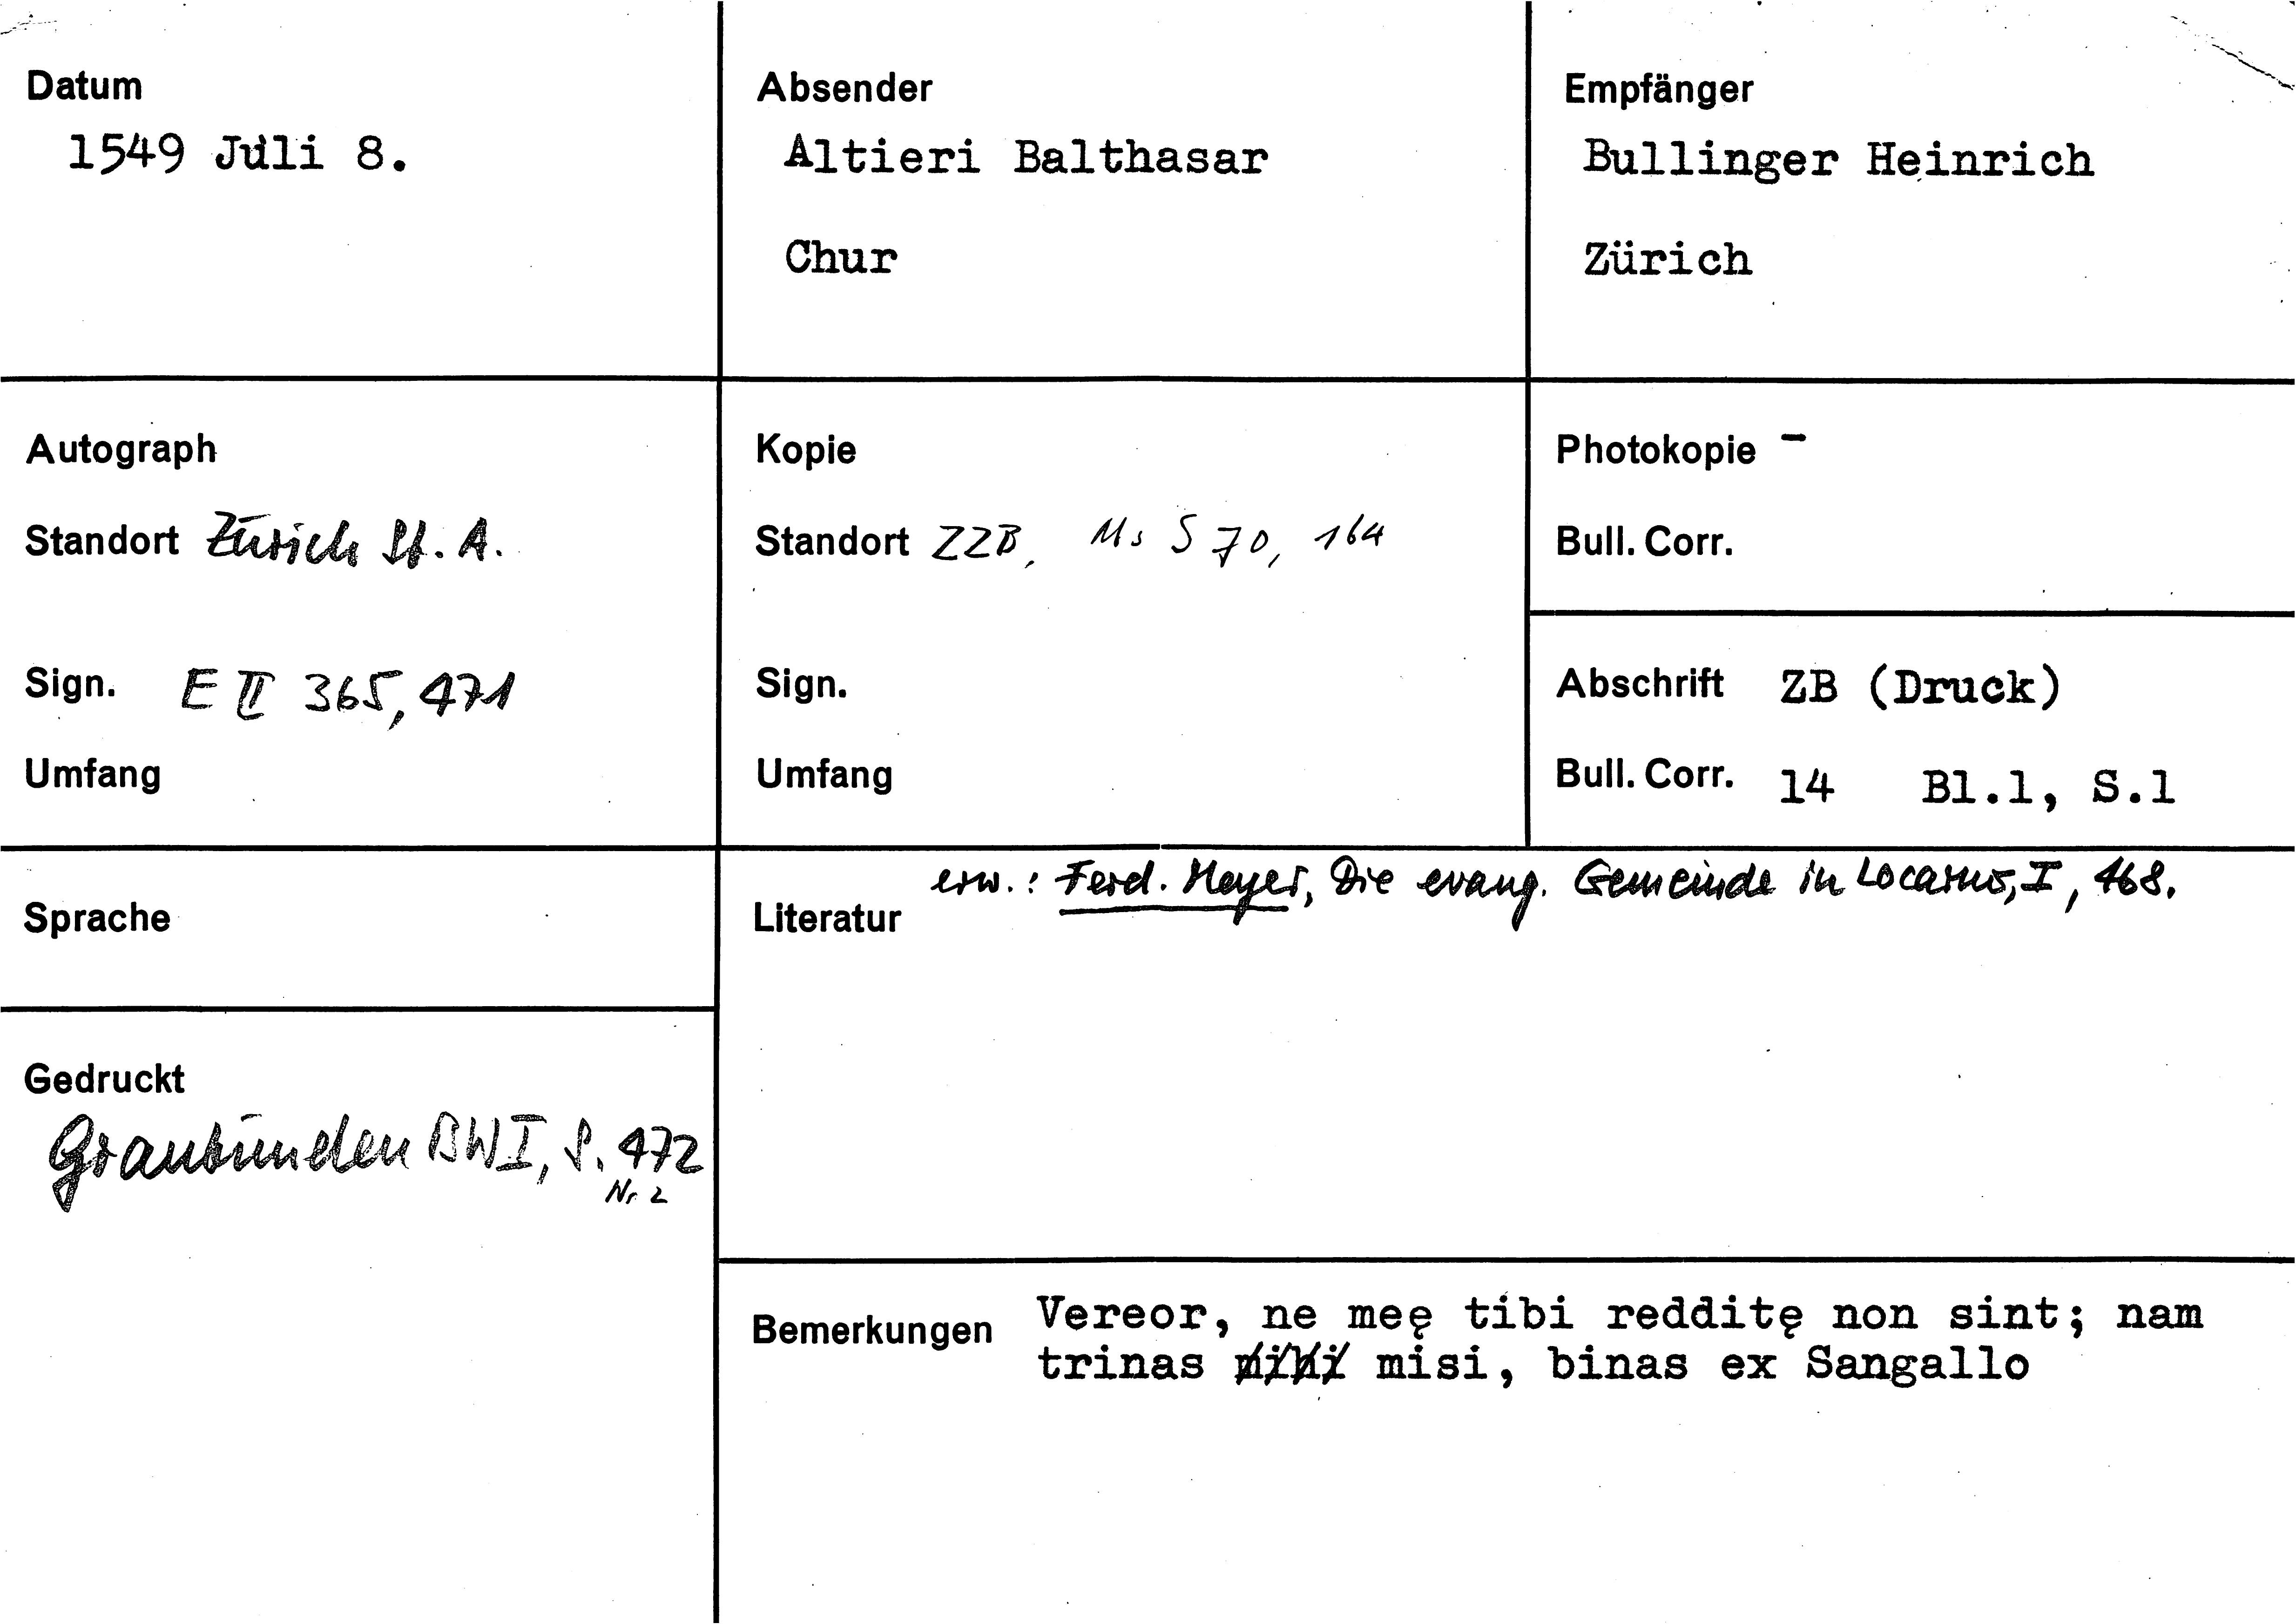 Datum
1549 Juli 8.
Absender
Altieri Balthasar
Chur
Empfänger
Bullinger Heinrich
Zürich
Autograph
Standort Zürich St. A.
Sign. E II 365, 471
Umfang
Kopie
Standort ZZB, Ms S 70, 164
Sign.
Umfang
Photokopie -
Bull. Corr.
Abschrift ZB (Druck)
Bull. Corr. 14 Bl.1, S.1
Sprache
Literatur erw.: Ferd. Meyer, Die evang. Gemeinde in Locarno, I, 168.
Gedruckt
Graubünden BW I, S. 472
Nr. 2
Bemerkungen Vereor, ne meę tibi redditę non sint; nam
trinas mihi misi, binas ex Sangallo